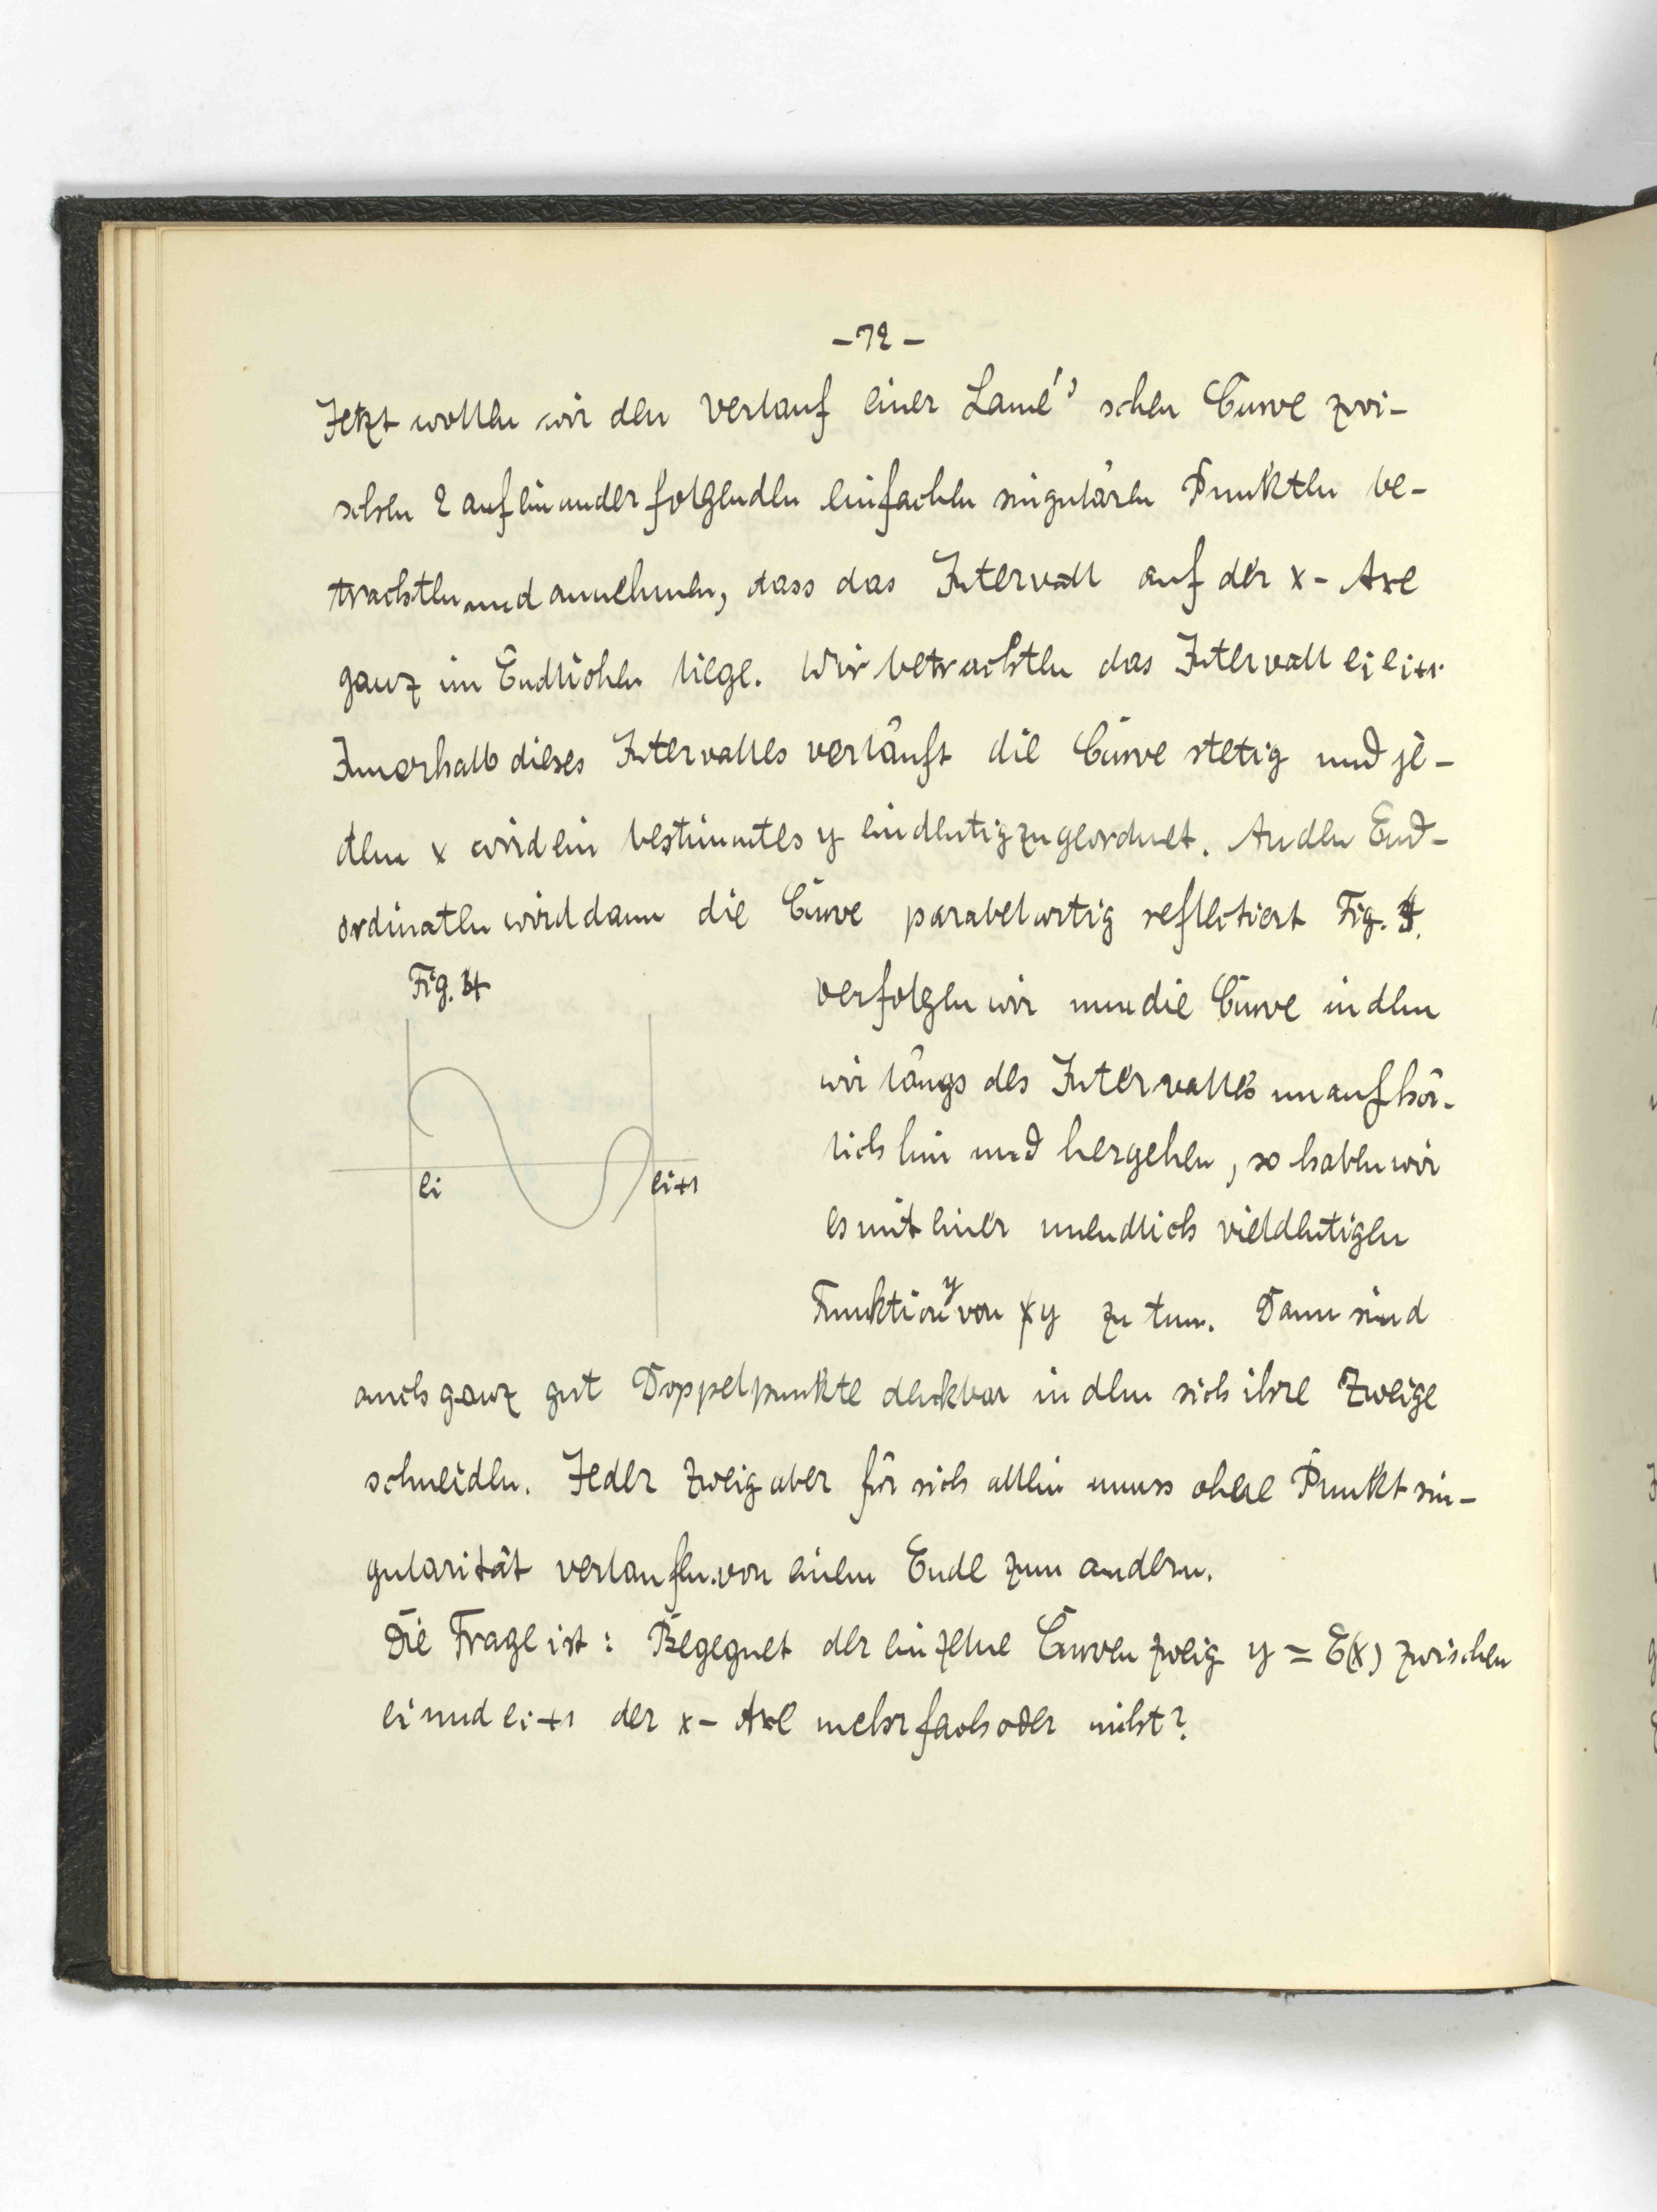 -72-
Jetzt wollen wir den Verlauf einer Lamé'schen Curve zwi-
schen 2 aufeinanderfolgenden einfachen singulären Punkten be-
trachten und annehmen, dass das Intervall auf der x-Axe
ganz im Endlichen liege. Wir betrachten das Intervall ei ei+1.
Innerhalb dieses Intervalles verläuft die Curve stetig und je-
dem x wird ein bestimmtes y eindeutig zugeordnet. An den End-
ordinaten wird dann die Curve parabelartig reflectiert Fig. 4.
Fig. 4
verfolgen wir nun die Curve indem
wir längs des Intervalles unaufhör-
lich hin und hergehen, so haben wir
es mit einer unendlich vieldeutigen
Funktion y von x y zu tun. Dann sind
ei
ei+1
auch ganz gut Doppelpunkte denkbar in dem sich ihre Zweige
schneiden. Jeder Zweig aber für sich allein muss ohne Punktsin-
gularität verlaufen von einem Ende zum andern.
Die Frage ist: Begegnet der einzelne Curvenzweig y = E(x) zwischen
ei und ei+1 der x-Axe mehrfach oder nicht?